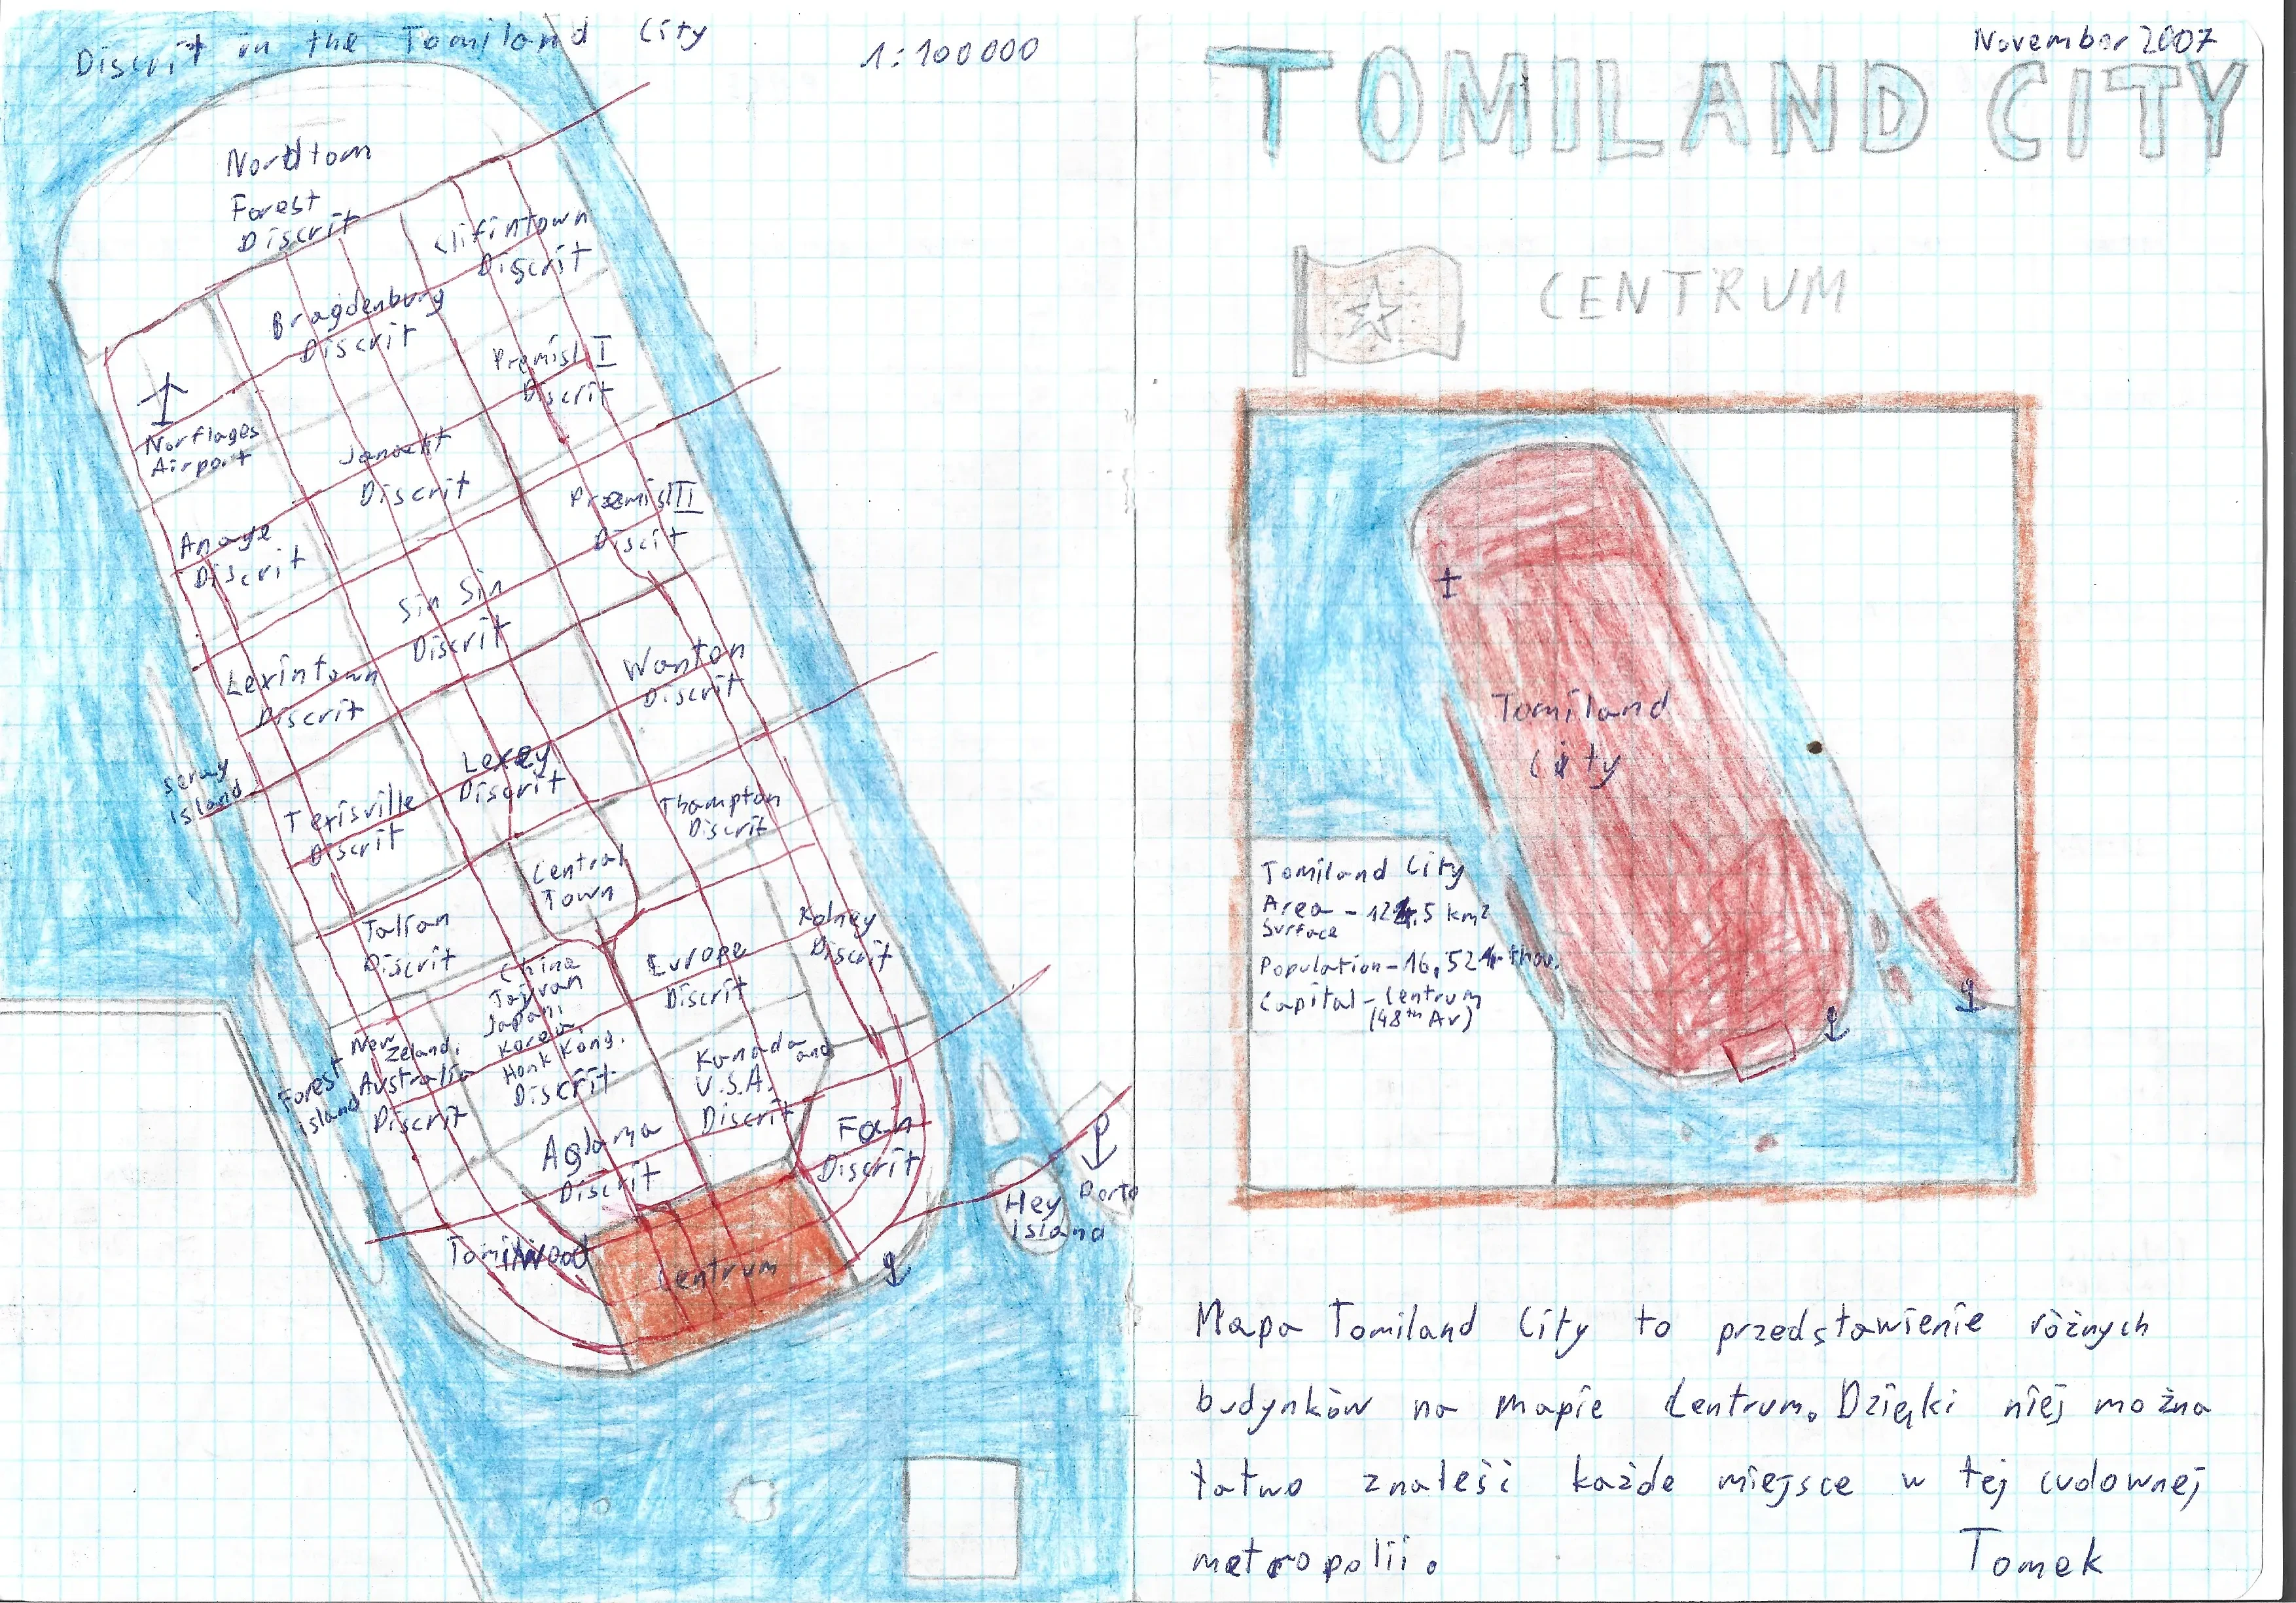 Discrit in the Tomiland City
1:100000
Nordtom
Forest
Discrit
Clifintown
Discrit
Bragdenburg
Discrit
Premisl I
Discrit
Norflages
Airport
Janselt
Discrit
Przemisl II
Discit
Anage
Discrit
Sin Sin
Discrit
Lexintown
Discrit
Wanton
Discrit
Seray
Island
Texisville
Discrit
Lexey
Discrit
Thampton
Discrit
Central
Town
Talian
Discrit
China
Tajwan
Japan,
Korea,
Honk Kong.
Discrit
Europe
Discrit
Kolney
Discrit
New
Zeland,
Australia
Discrit
Forest
island
Kanada and
U.S.A.
Discrit
Aglama
Discrit
Fan
Discrit
Tomiwood
Centrum
Hey
Island
Porto
November 2007
TOMILAND CITY
CENTRUM
Tomiland
City
Tomiland City
Area - 124,5 km2
Surface
Population - 16,521 thou.
Capital - Centrum
(48th Av)
Mapa Tomiland City to przedstawienie różnych
budynków na mapie Centrum. Dzięki niej można
łatwo znaleśi każde miejsce w tej cudownej
metropolii.
Tomek